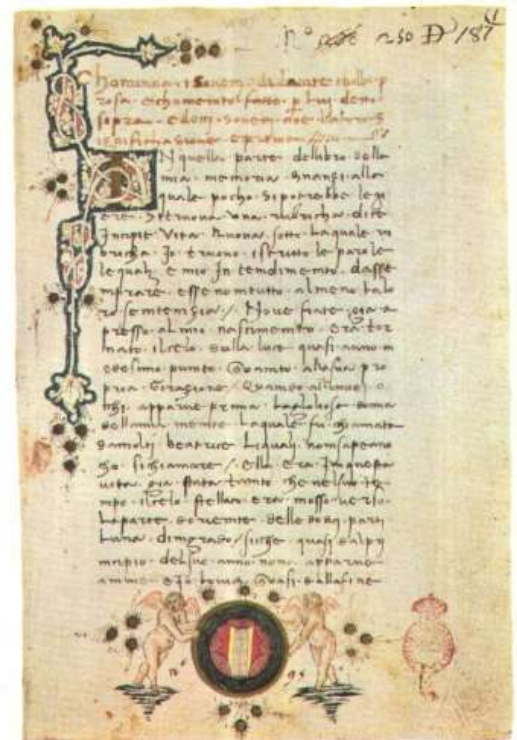 N° 250 D 187
Chominca i Sonetti di dante cholla p
rosa e chomento fatto p lui
sopra
N quella parte de libro della
mia memoria inanzi alla
quale pocho si potrebbe legi
ere Si truova una rubricha dice
Incipit Vita Nuova sotto la quale ru
bricha Io truovo iscritto le parole
le quali e mio Intendimento dasse
mprare esse nomtutto almeno la lo
ro sentensia / Nove fiate gia a
presso al mio nascimento era tor
nato il celo della luce quasi a uno m
edesimo punto Quanto alla sua pro
pria Giragione / Quando alli miei o
chi apparve prima la gloriosa dona
della mia mente la quale fu chiamata
da molti beatrice li quali nom sapeano
che si chiamare / ella era In questa
vita gia stata tanto che nel suo te
mpo il celo stellato era mosso verso
la parte
una di grado / siche quasi dal pri
ncipio del suo anno nono apparve
a me e Io la vidi Quasi dalla fine